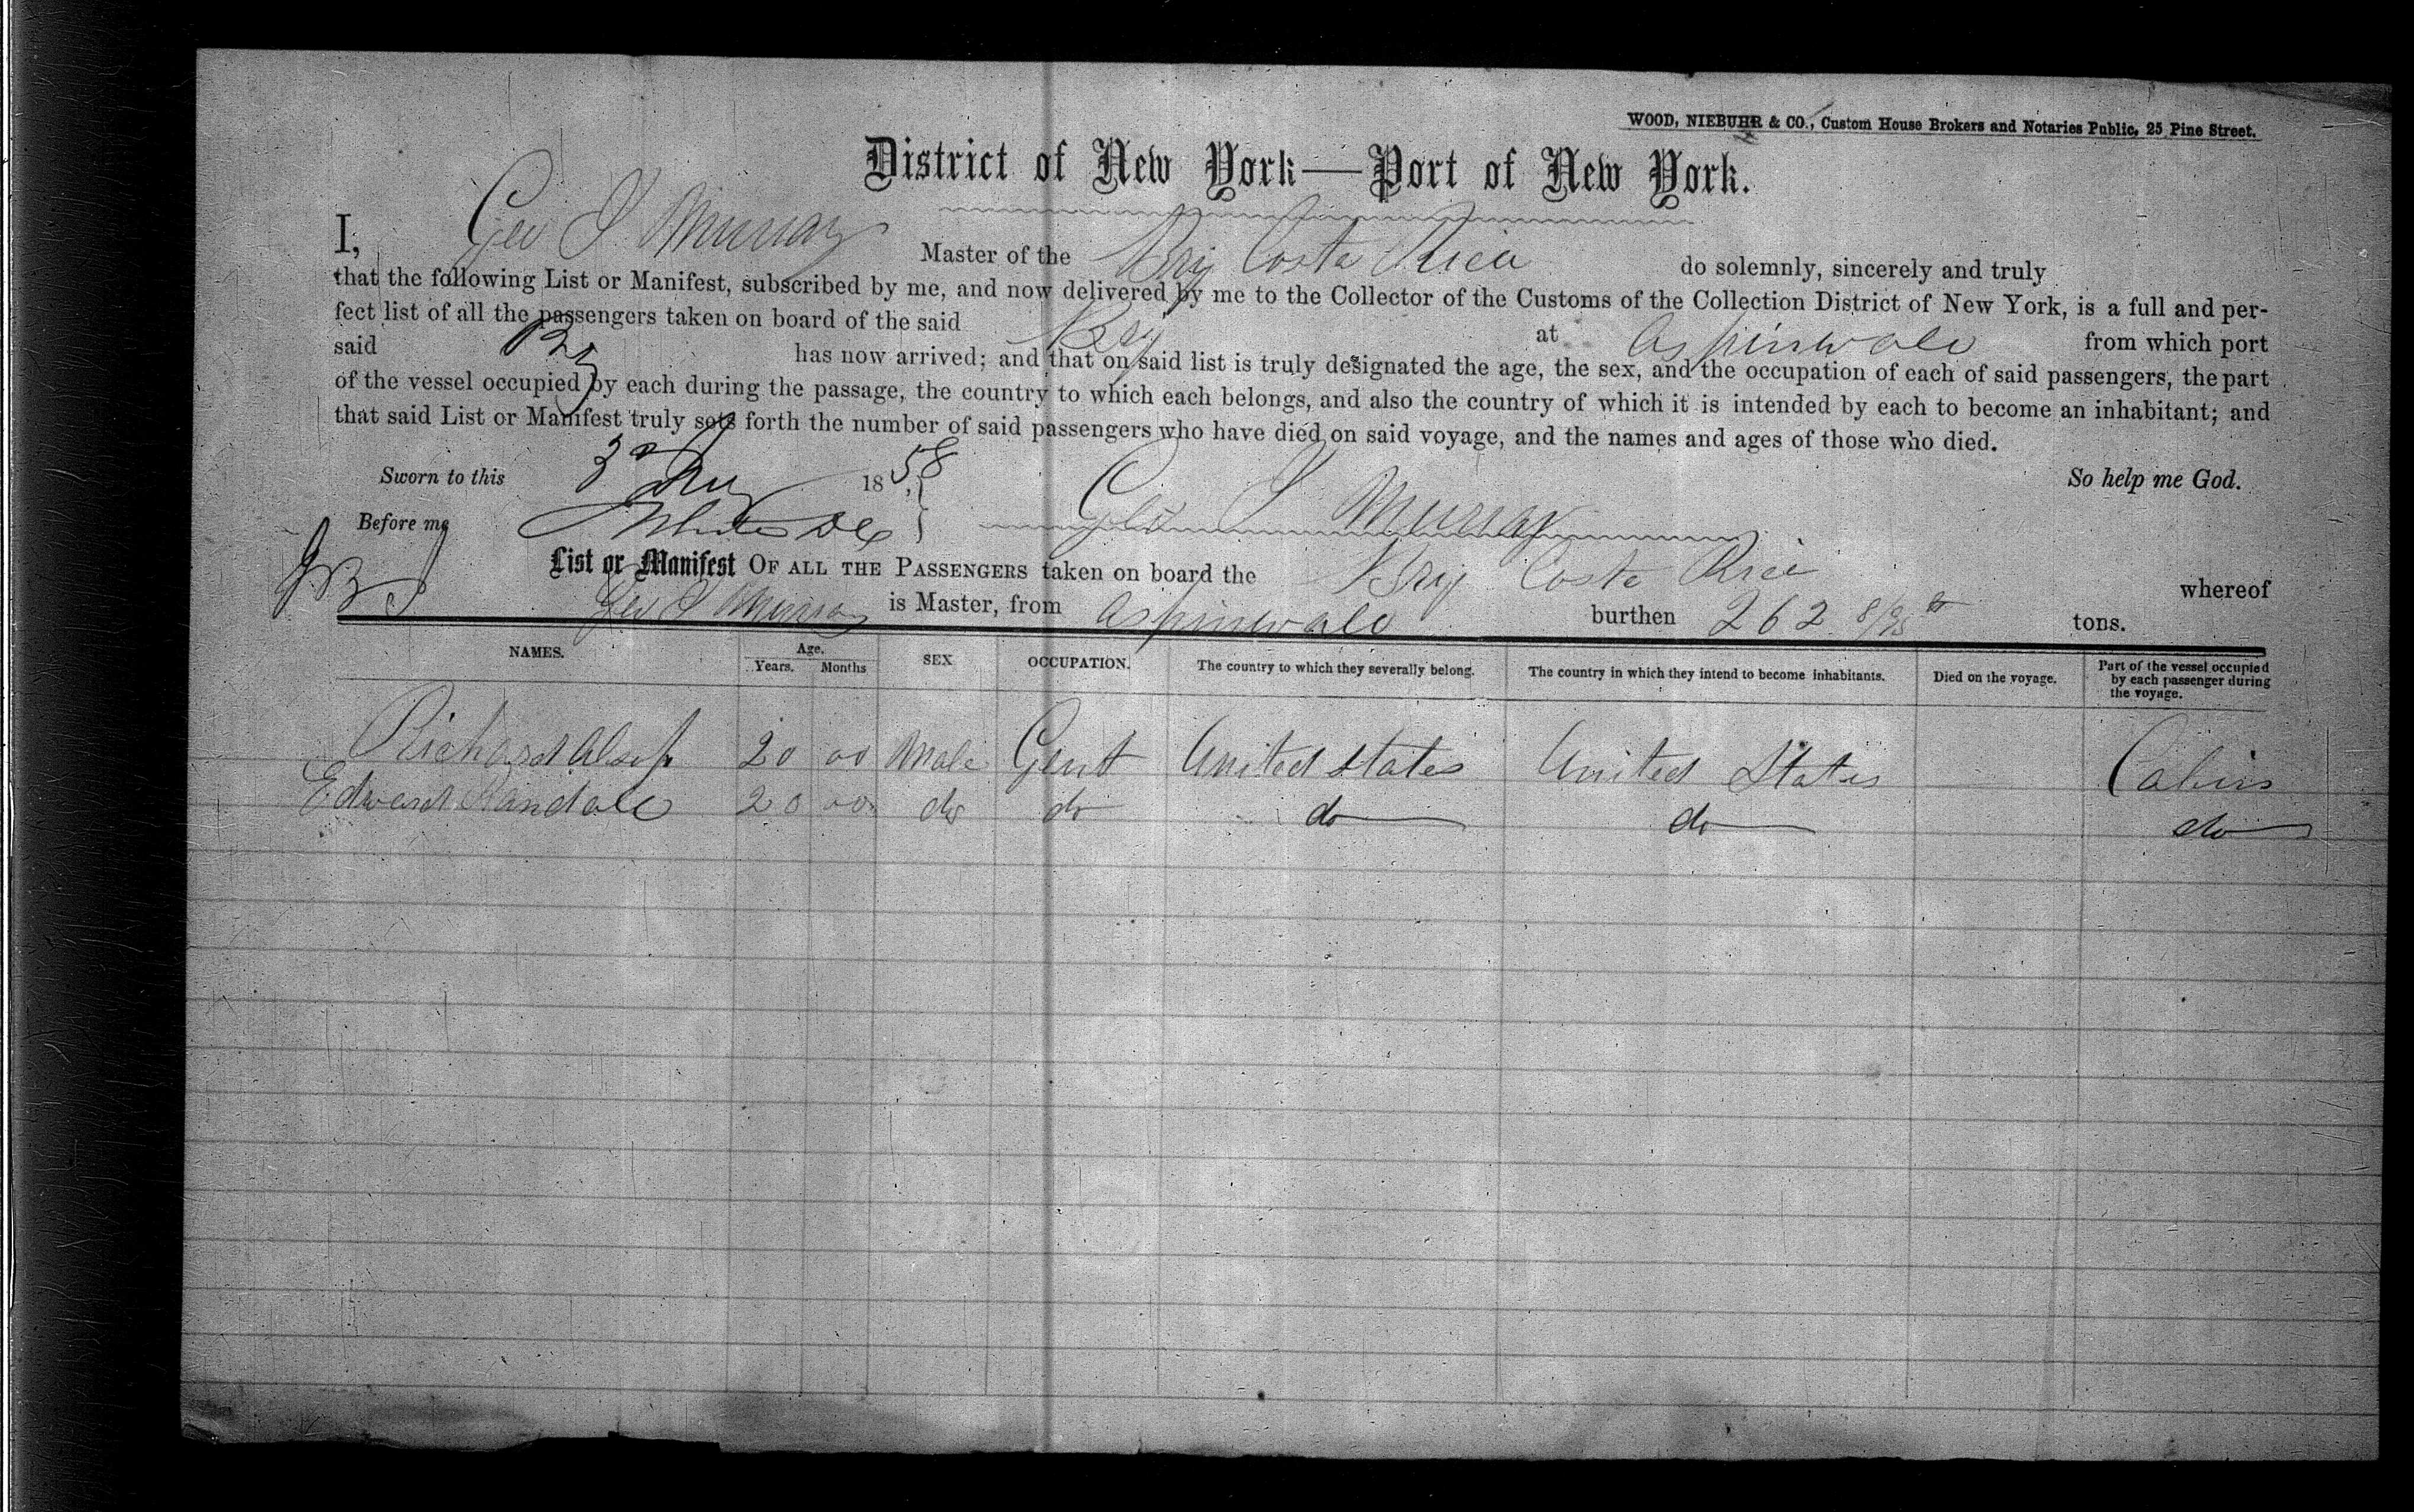 WOOD, NIEBUHR & CO., Custom House Brokers and Notaries Public, 25 Pine Street.
District of New York—Port of New York.
I, Geo S Murray Master of the Brig Costa Rica do solemnly, sincerely and truly
that the following List or Manifest, subscribed by me, and now delivered by me to the Collector of the Customs of the Collection District of New York, is a full and per-
fect list of all the passengers taken on board of the said Brig at Aspinwall from which port
said Brig has now arrived; and that on said list is truly designated the age, the sex, and the occupation of each of said passengers, the part
of the vessel occupied by each during the passage, the country to which each belongs, and also the country of which it is intended by each to become an inhabitant; and
that said List or Manifest truly sets forth the number of said passengers who have died on said voyage, and the names and ages of those who died.
Sworn to this 3d 1858 So help me God.
Before me Geo S Murray
List or Manifest OF ALL THE PASSENGERS taken on board the Brig Costa Rica whereof
Geo S Murray is Master, from Aspinwall burthen 262 8/95 tons.
NAMES. Age. Years. Months SEX OCCUPATION. The country to which they severally belong. The country in which they intend to become inhabitants. Died on the voyage. Part of the vessel occupied by each passenger during the voyage.
Richard Alsop 20 00 Male Gent United States United States Cabin
Edward Randall 20 00 do do do do do